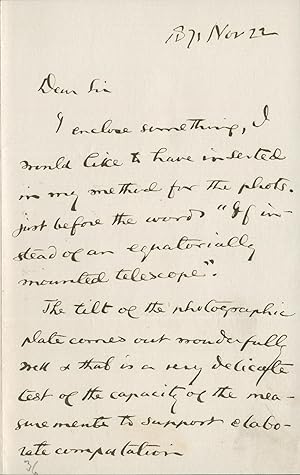 1871 Nov 22
Dear Sir
I enclose something, I
would like to have inserted
in my method for the phots.
just before the words "If in-
stead of an equatorially
mounted telescope".
The tilt of the photographic
plate comes out wonderfully
well & that is a very delicate
test of the capacity of the mea-
surements to support elabo-
rate computation